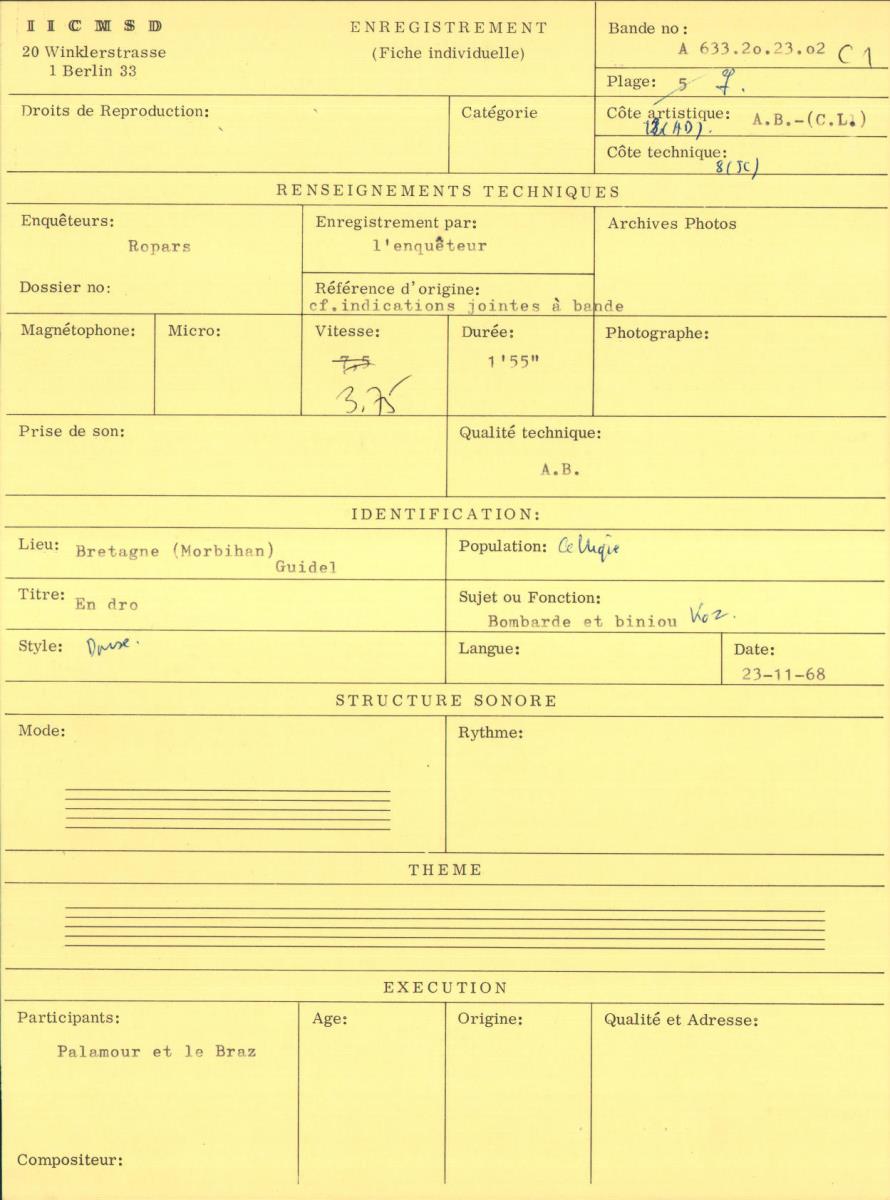 I I C M S D
20 Winklerstrasse
1 Berlin 33
ENREGISTREMENT
(Fiche individuelle)
Bande no:
A 633.2o.23.o2 C 1
Plage: 5 7.
Droits de Reproduction:
Catégorie
Côte artistique: A.B.-(C.L.)
(AD).
Côte technique:
8(JC)
RENSEIGNEMENTS TECHNIQUES
Enquêteurs:
Ropars
Dossier no:
Enregistrement par:
l'enquêteur
Référence d'origine:
cf.indications jointes à bande
Archives Photos
Magnétophone:
Micro:
Vitesse:
7,5
3.75
Durée:
1'55"
Photographe:
Prise de son:
Qualité technique:
A.B.
IDENTIFICATION:
Lieu: Bretagne (Morbihan)
Guidel
Population: Celtique
Titre: En dro
Sujet ou Fonction:
Bombarde et biniou Koz.
Style: Danse.
Langue:
Date:
23-11-68
STRUCTURE SONORE
Mode:
Rythme:
THEME
EXECUTION
Participants:
Palamour et le Braz
Age:
Origine:
Qualité et Adresse:
Compositeur: